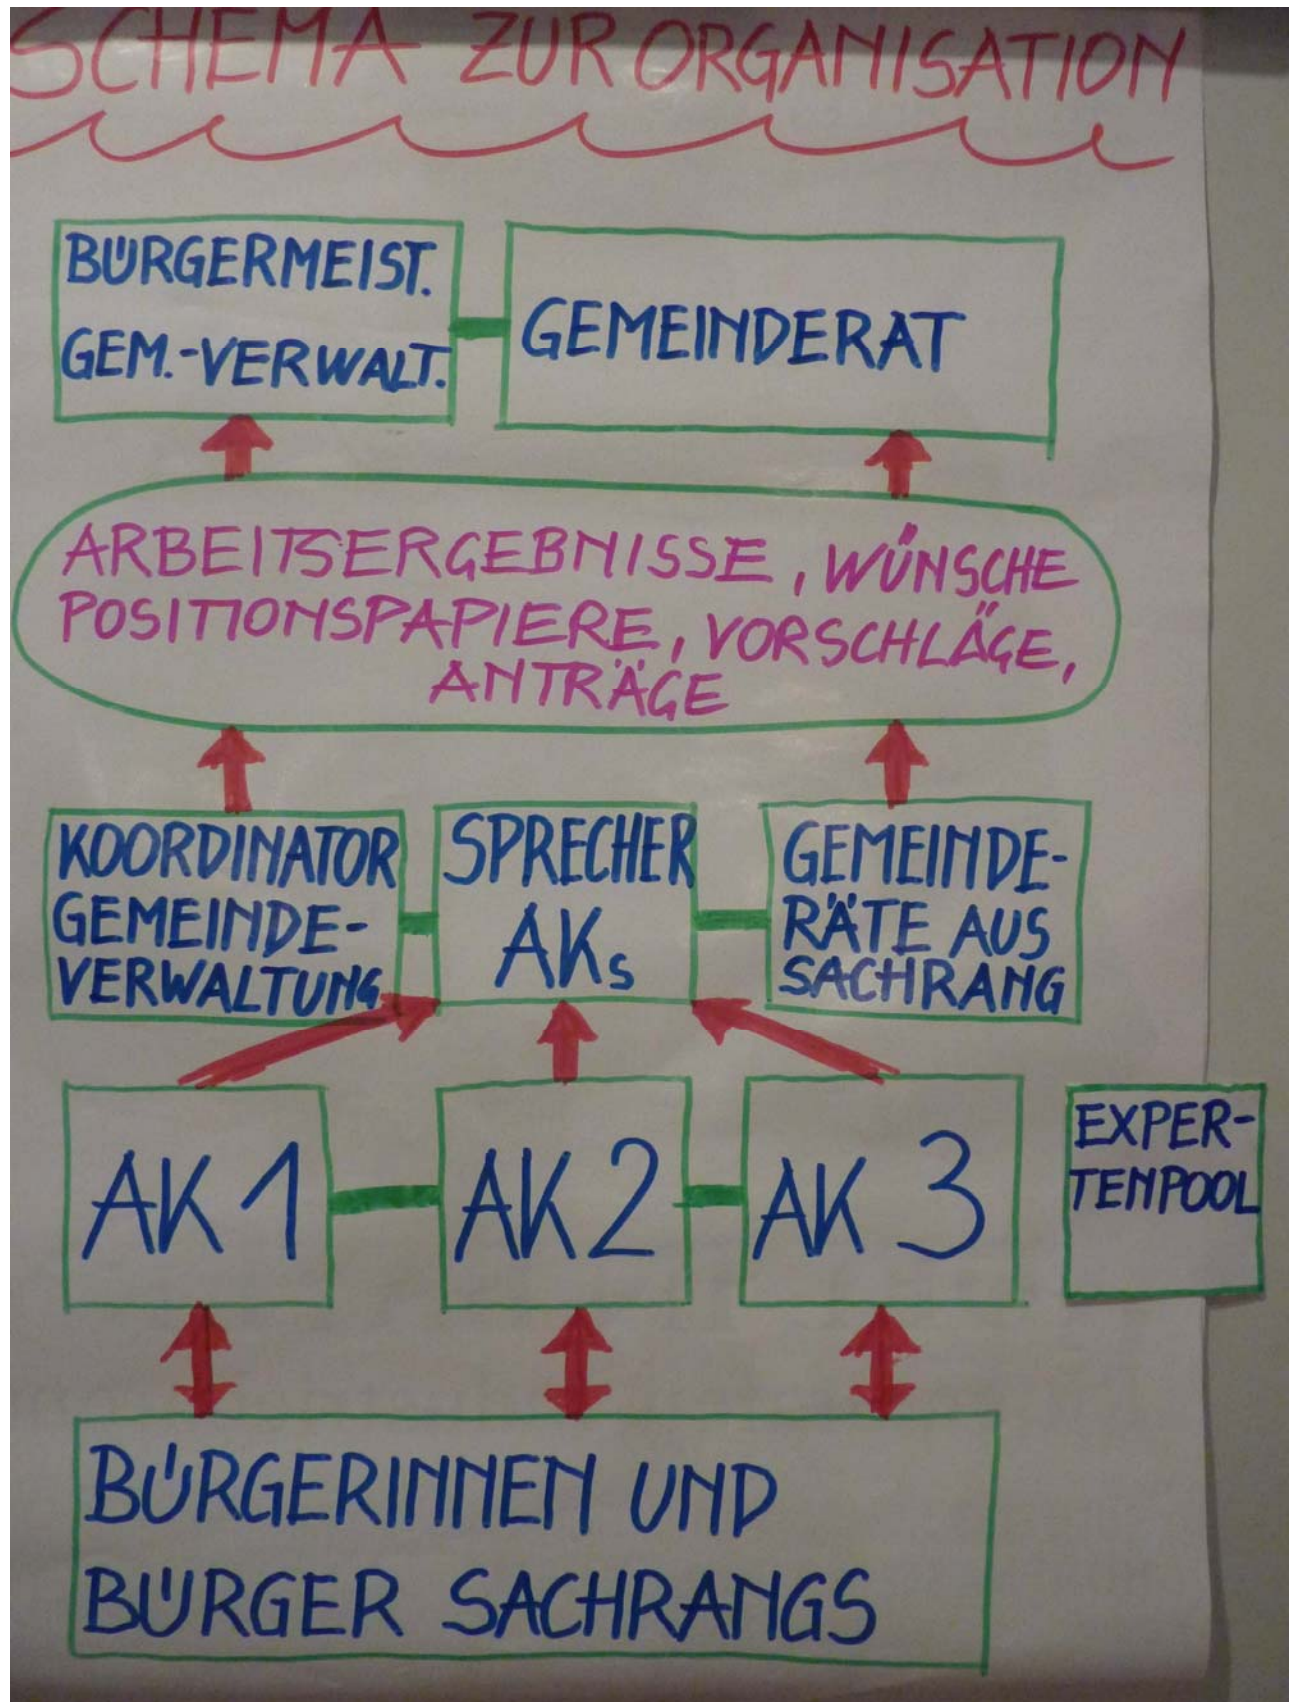 SCHEMA ZUR ORGANISATION
BÜRGERMEIST.
GEM.-VERWALT.
GEMEINDERAT
ARBEITSERGEBNISSE, WÜNSCHE
POSITIONSPAPIERE, VORSCHLÄGE,
ANTRÄGE
KOORDINATOR
GEMEINDE-
VERWALTUNG
SPRECHER
AKs
GEMEINDE-
RÄTE AUS
SACHRANG
AK 1
AK 2
AK 3
EXPER-
TENPOOL
BÜRGERINNEN UND
BÜRGER SACHRANGS